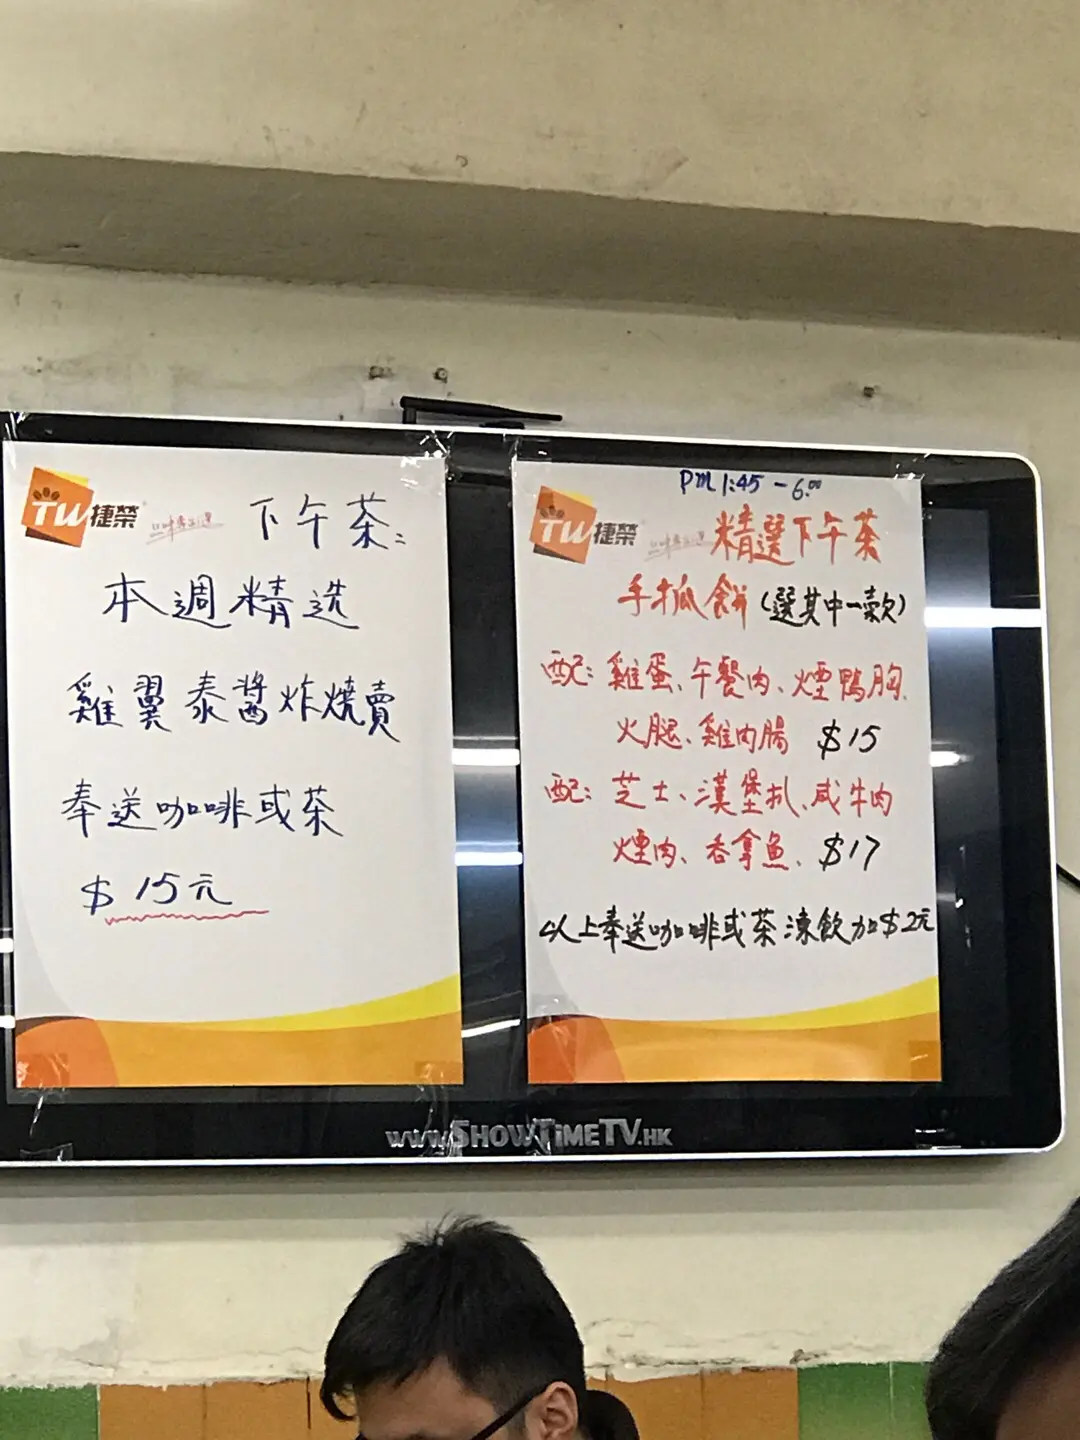 TW捷榮
下午茶：
本週精选
雞翼泰醬炸燒賣
奉送咖啡或茶
$15元
PM 1:45 - 6:00
TW捷榮
精選下午茶
手抓餅（選其中一款）
配：雞蛋、午餐肉、煙鴨胸、
火腿、雞肉腸 $15
配：芝士、漢堡扒、咸牛肉
煙肉、吞拿魚、$17
以上奉送咖啡或茶凍飲加$2元
www.SHOWTIMETV.HK